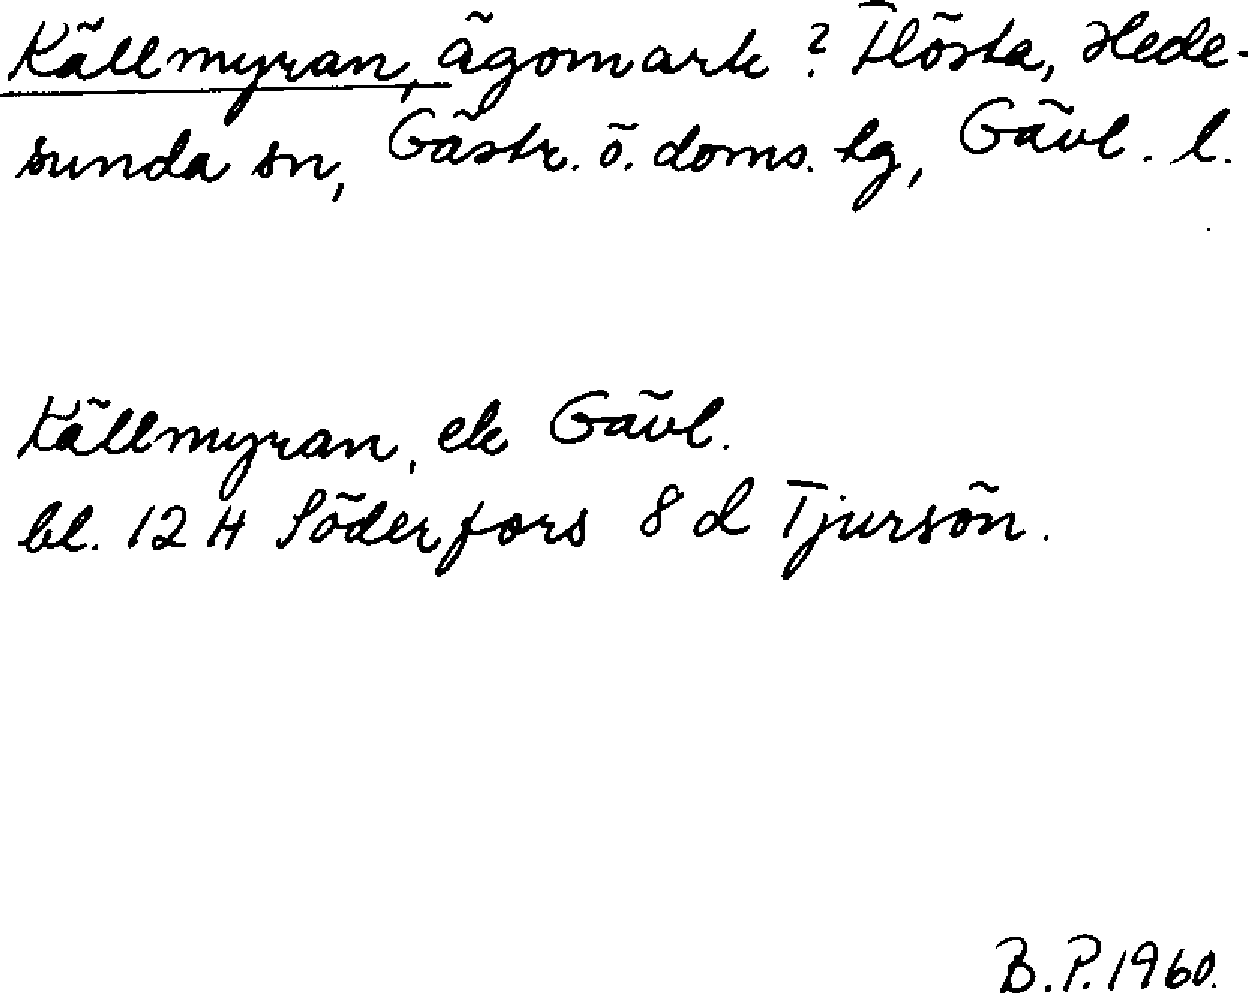 Källmyran, ägomark? Flösta, Hede-
sunda sn, Gästr. ö. doms. tg, Gävl. l.
Källmyran, ek Gävl.
bl. 12 H Söderfors 8 d Tjursön.
B.P. 1960.